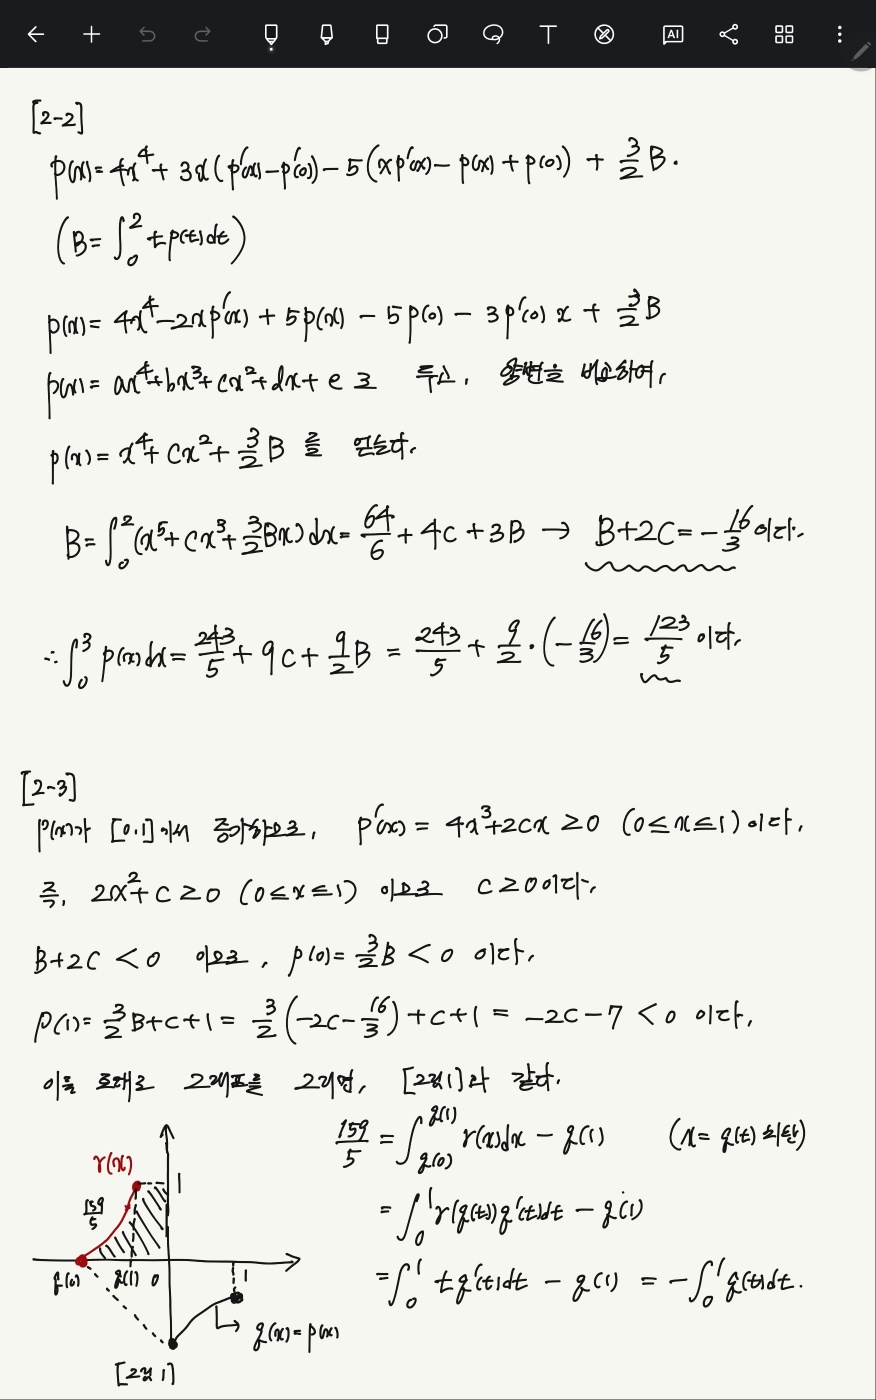 [2-2]
p(x) = 4x⁴ + 3x(p'(x) - p'(0)) - 5(xp'(x) - p(x) + p(0)) + 3/2 B.
(B = ∫₀² tp(t)dt)
p(x) = 4x⁴ - 2xp'(x) + 5p(x) - 5p(0) - 3p'(0)x + 3/2 B
p(x) = ax⁴+bx³+cx²+dx+e로 두고, 양변을 비교하여,
p(x) = x⁴+cx²+3/2 B를 얻는다.
B = ∫₀² (x⁵+cx³+3/2 Bx)dx = 64/6 + 4c + 3B → B+2C = -16/3 이다.
∴ ∫₀³ p(x)dx = 243/5 + 9c + 9/2 B = 243/5 + 9/2 · (-16/3) = 123/5 이다.
[2-3]
p(x)가 [0,1]에서 증가하므로, p'(x) = 4x³+2cx ≥ 0 (0≤x≤1)이다,
즉, 2x²+c ≥ 0 (0≤x≤1) 이므로 c≥0이다,
B+2C < 0 이므로, p(0) = 3/2 B < 0 이다,
p(1) = 3/2 B+c+1 = 3/2 (-2c-16/3)+c+1 = -2c-7 < 0 이다,
이를 토대로 그래프를 그리면, [그림1]과 같다.
r(x)
1
159/5
q(0) q(1) 0 1
q(x) = p(x)
[그림1]
159/5 = ∫_{q(0)}^{q(1)} r(x)dx - q(1) (x = q(t) 치환)
= ∫₀¹ r(q(t))q'(t)dt - q(1)
= ∫₀¹ tq'(t)dt - q(1) = -∫₀¹ q(t)dt.